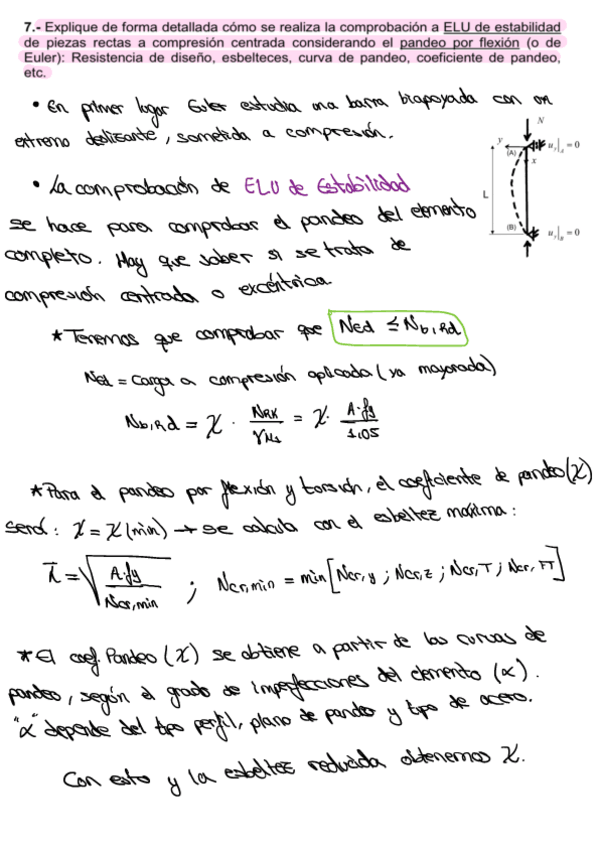 7.- Explique de forma detallada cómo se realiza la comprobación a ELU de estabilidad
de piezas rectas a compresión centrada considerando el pandeo por flexión (o de
Euler): Resistencia de diseño, esbelteces, curva de pandeo, coeficiente de pandeo,
etc.
• En primer lugar Euler estudia una barra biapoyada con un
extremo deslizante, sometida a compresión.
N
y
(A)
u_y|_A = 0
x
L
(B)
u_y|_B = 0
• La comprobación de ELU de Estabilidad
se hace para comprobar el pandeo del elemento
completo. Hay que saber si se trata de
compresión centrada o excéntrica.
* Tenemos que comprobar que NEd ≤ Nb,Rd
NEd = Carga a compresión aplicada (ya mayorada)
Nb,Rd = χ · NRK / γM1 = χ · A·fy / 1,05
* Para el pandeo por flexión y torsión, el coeficiente de pandeo (χ)
será: χ = χ(min) → se calcula con el esbeltez máxima:
λ̄ = √(A·fy / Ncr,min) ; Ncr,min = min[Ncr,y ; Ncr,z ; Ncr,T ; Ncr,FT]
* El coef. Pandeo (χ) se obtiene a partir de las curvas de
pandeo, según el grado de imperfecciones del elemento (α).
"α" depende del tipo perfil, plano de pandeo y tipo de acero.
Con esto y la esbeltez reducida obtenemos χ.